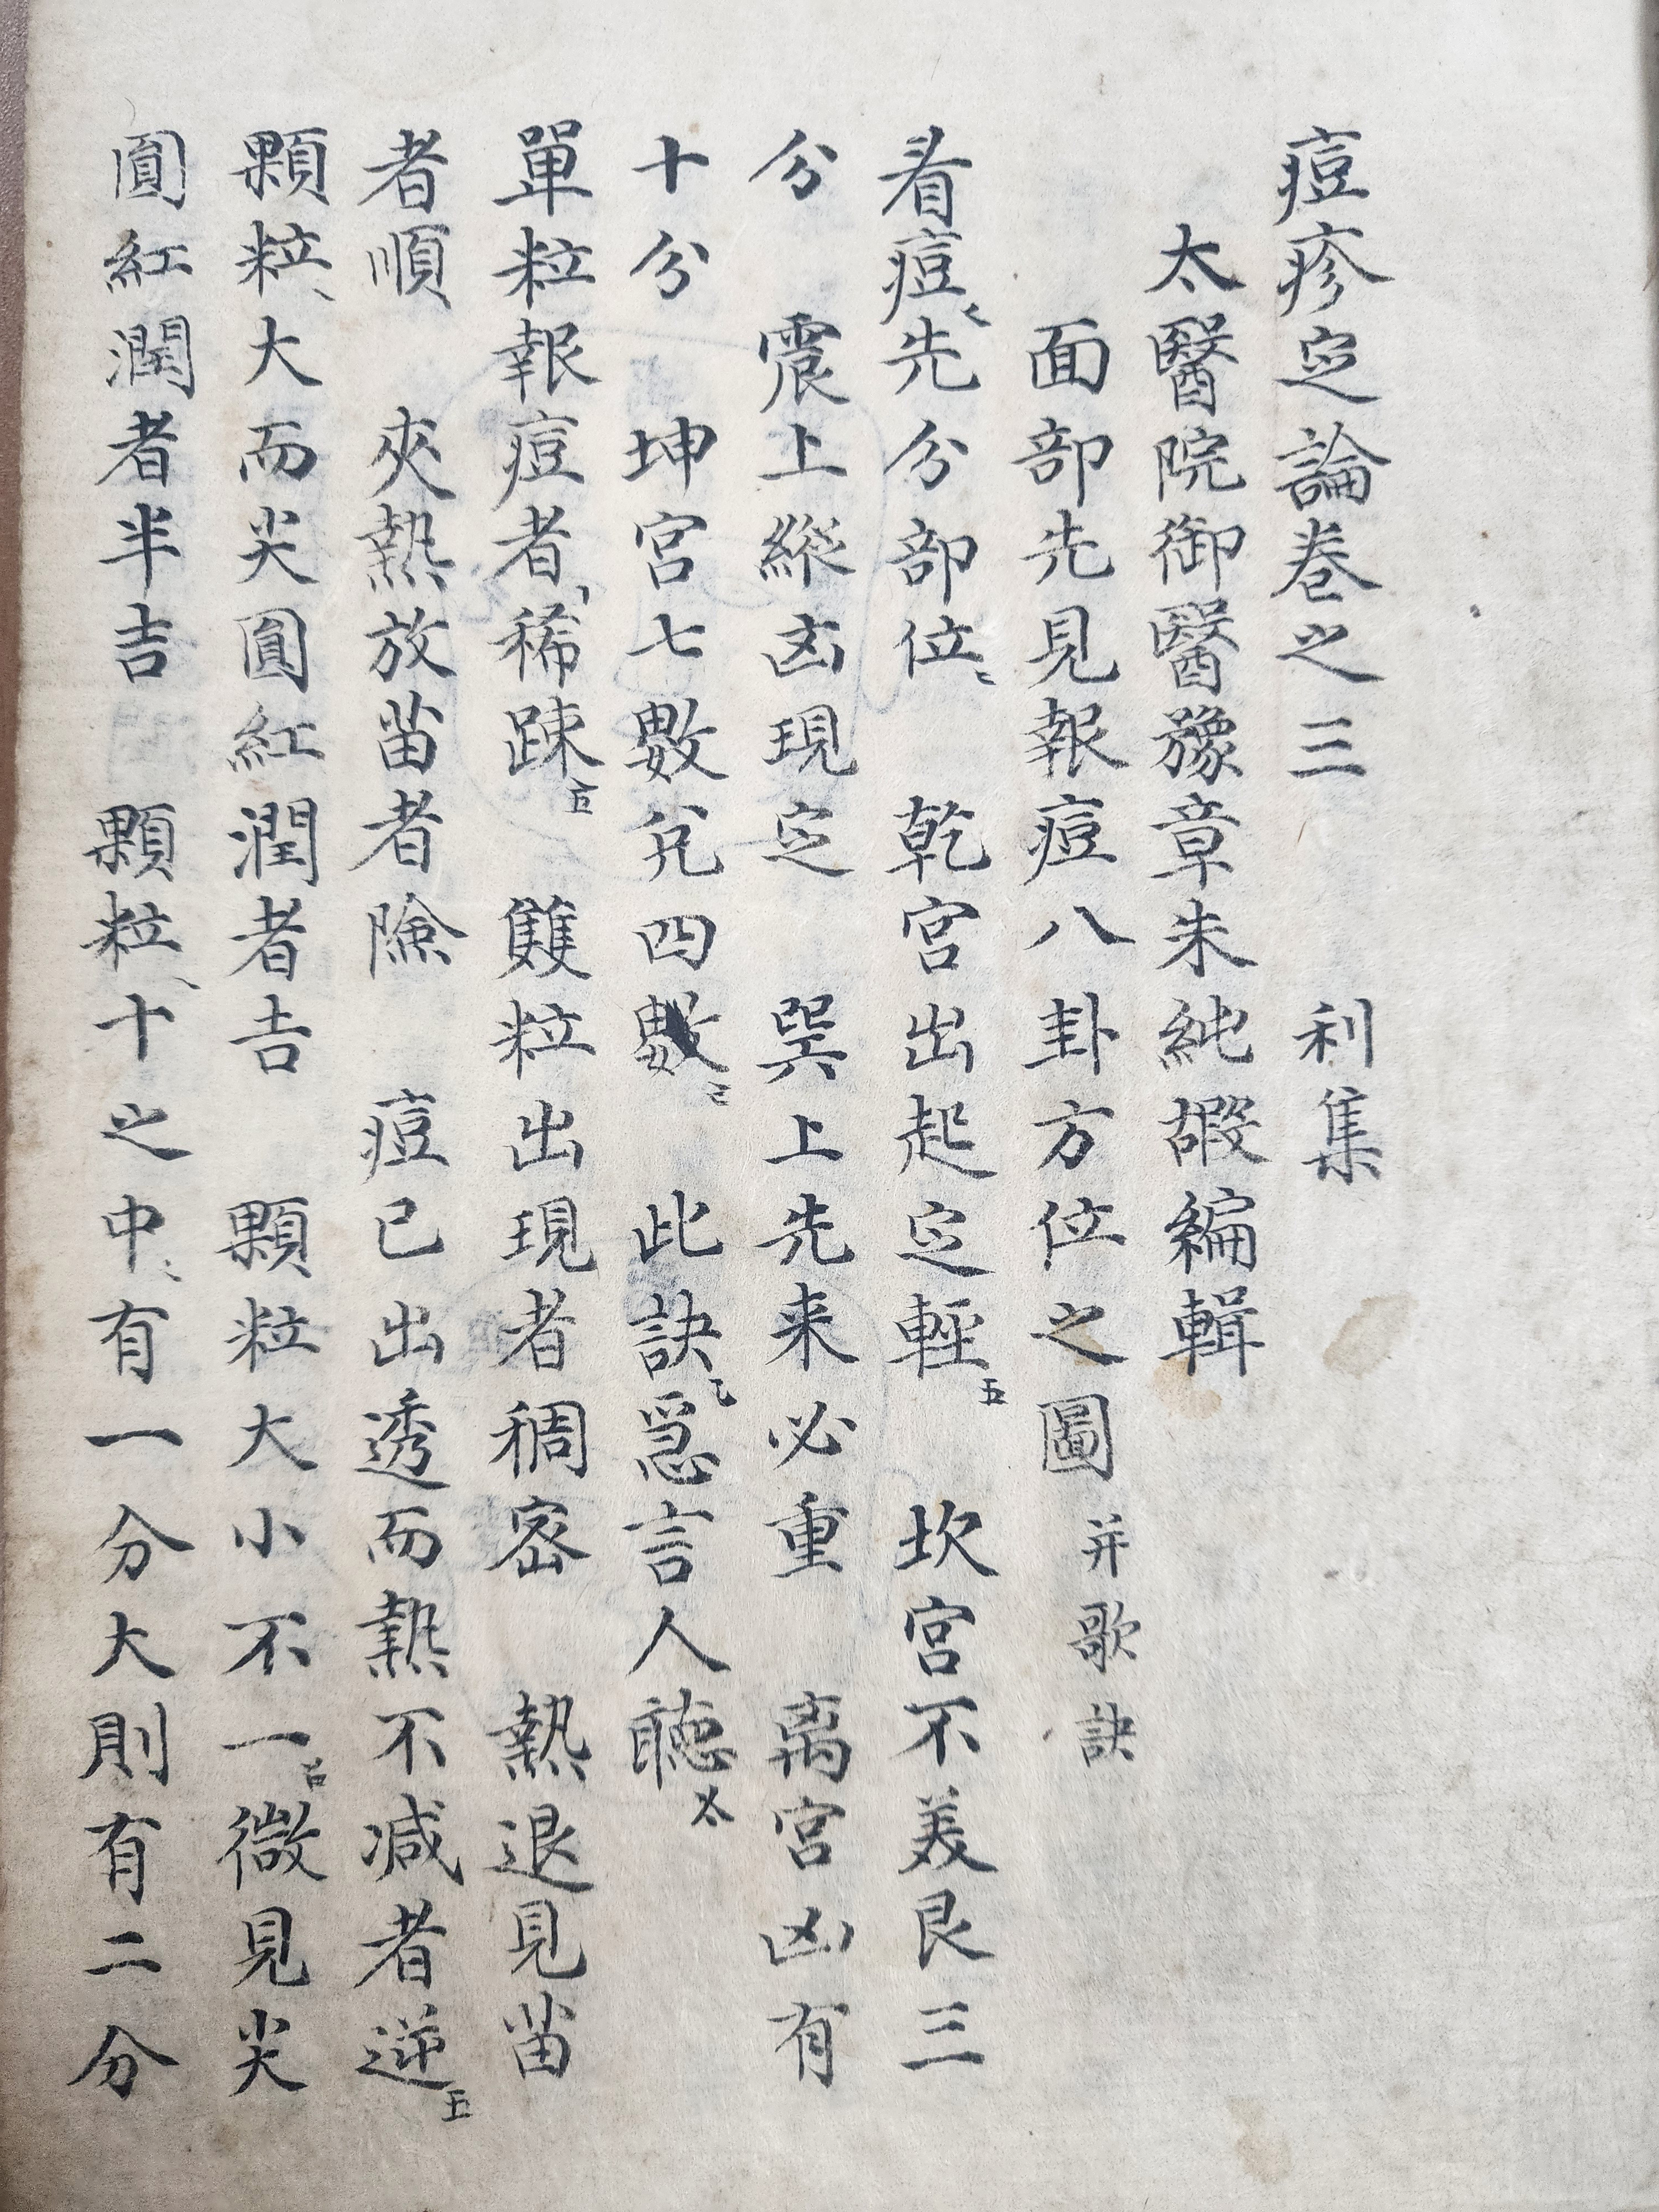 痘疹定論卷之三　　利集
太醫院御醫豫章朱純嘏編輯
面部先見報痘八卦方位之圖并歌訣
看痘先分部位　乾宮出起定輕　坎宮不美艮三
分　震上縱凶現定　巽上先来必重　离宮凶有
十分　坤宮七數兌四數　此訣急言人聽
單粒報痘者稀踈　雙粒出現者稠密　熱退見苗
者順　夾熱放苗者險　痘已出透而熱不减者逆
顆粒大而尖圓紅潤者吉　顆粒大小不一微見尖
圓紅潤者半吉　顆粒十之中有一分大則有二分